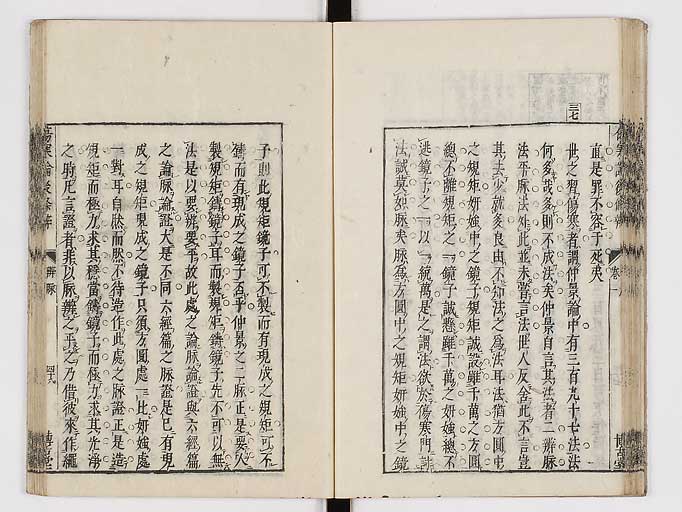 三七
直是罪不容于死矣
世之習傷寒者謂仲景論中有三百九十七法法
何多哉多則不成法矣仲景自言其法者二辨脉
法平脉法外此並未嘗言法世人反舍此不言豈
其去少就多良由不知法之爲法耳法猶方圓中
之規矩妍媸中之鏡子規矩誠設雖千萬之方圓
總不離規矩之一鏡子誠懸雖千萬之妍媸總不
逃鏡子之一以一統萬是之謂法欲於傷寒門
法誠莫如脉矣脉爲方圓中之規矩妍媸中之鏡
子則此規矩鏡子可不製而有現成之規矩可不
鑄而有現成之鏡子否乎仲景之二脉正是要人
製規矩鑄鏡子耳而製規矩鑄鏡子先不可以無
法是以要辨要平故此處之論脉論證與六經篇
之論脉論證大是不同六經篇之脉證是已有現
成之規矩現成之鏡子只須方圓處一比妍媸處
一對耳自然而然不待造作此處之脉證正是造
規矩而極力求其穩當鑄鏡子而極力求其光
之時凡言證者非以脉辨之平之乃借彼來作繩
傷寒論後條辨
辨脉
博古堂